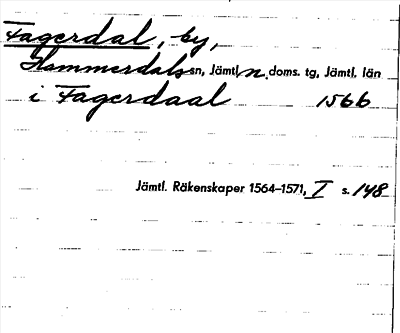 Fagerdal, by,
Hammerdals sn, Jämtl. n. doms. tg, Jämtl. län
i Fagerdaal 1566
Jämtl. Räkenskaper 1564–1571, I s. 148